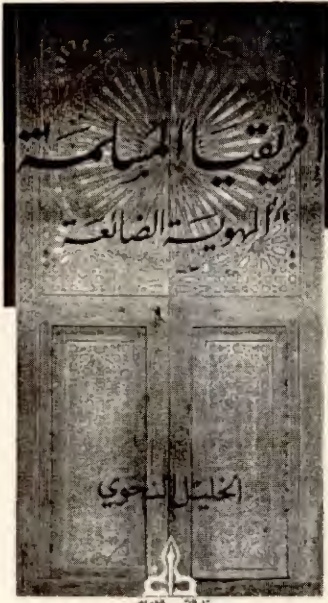 افريقيا المسلمة
الهوية الضائعة
الخليل النحوي